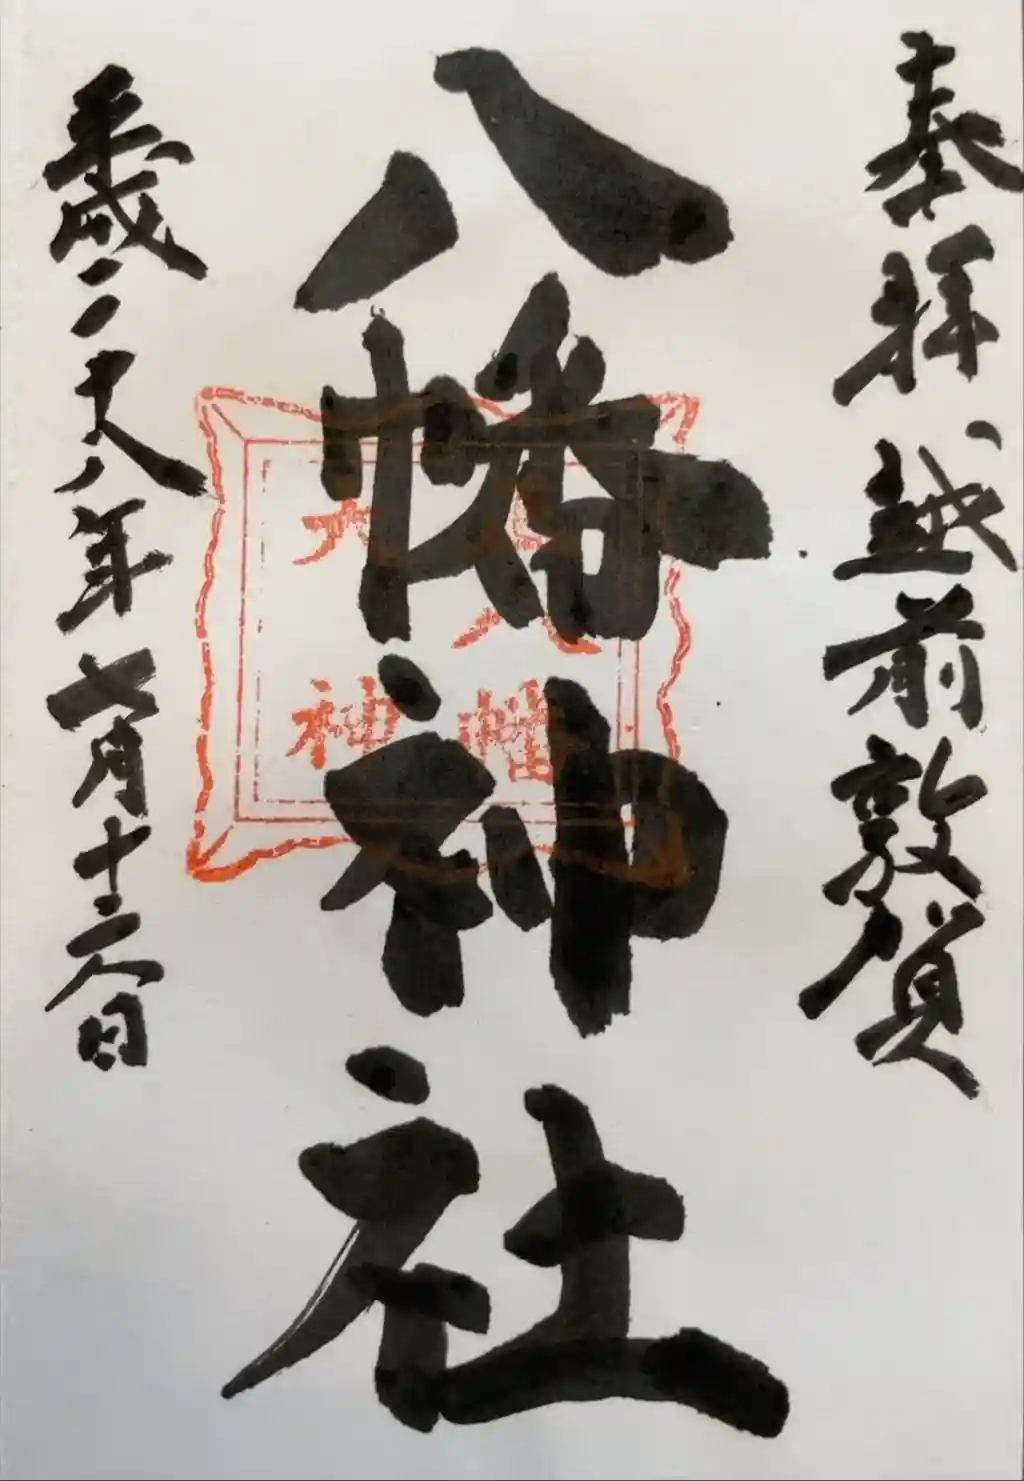 奉拝 越前敦賀
八幡神社
平成二十八年七月十六日
八幡
神